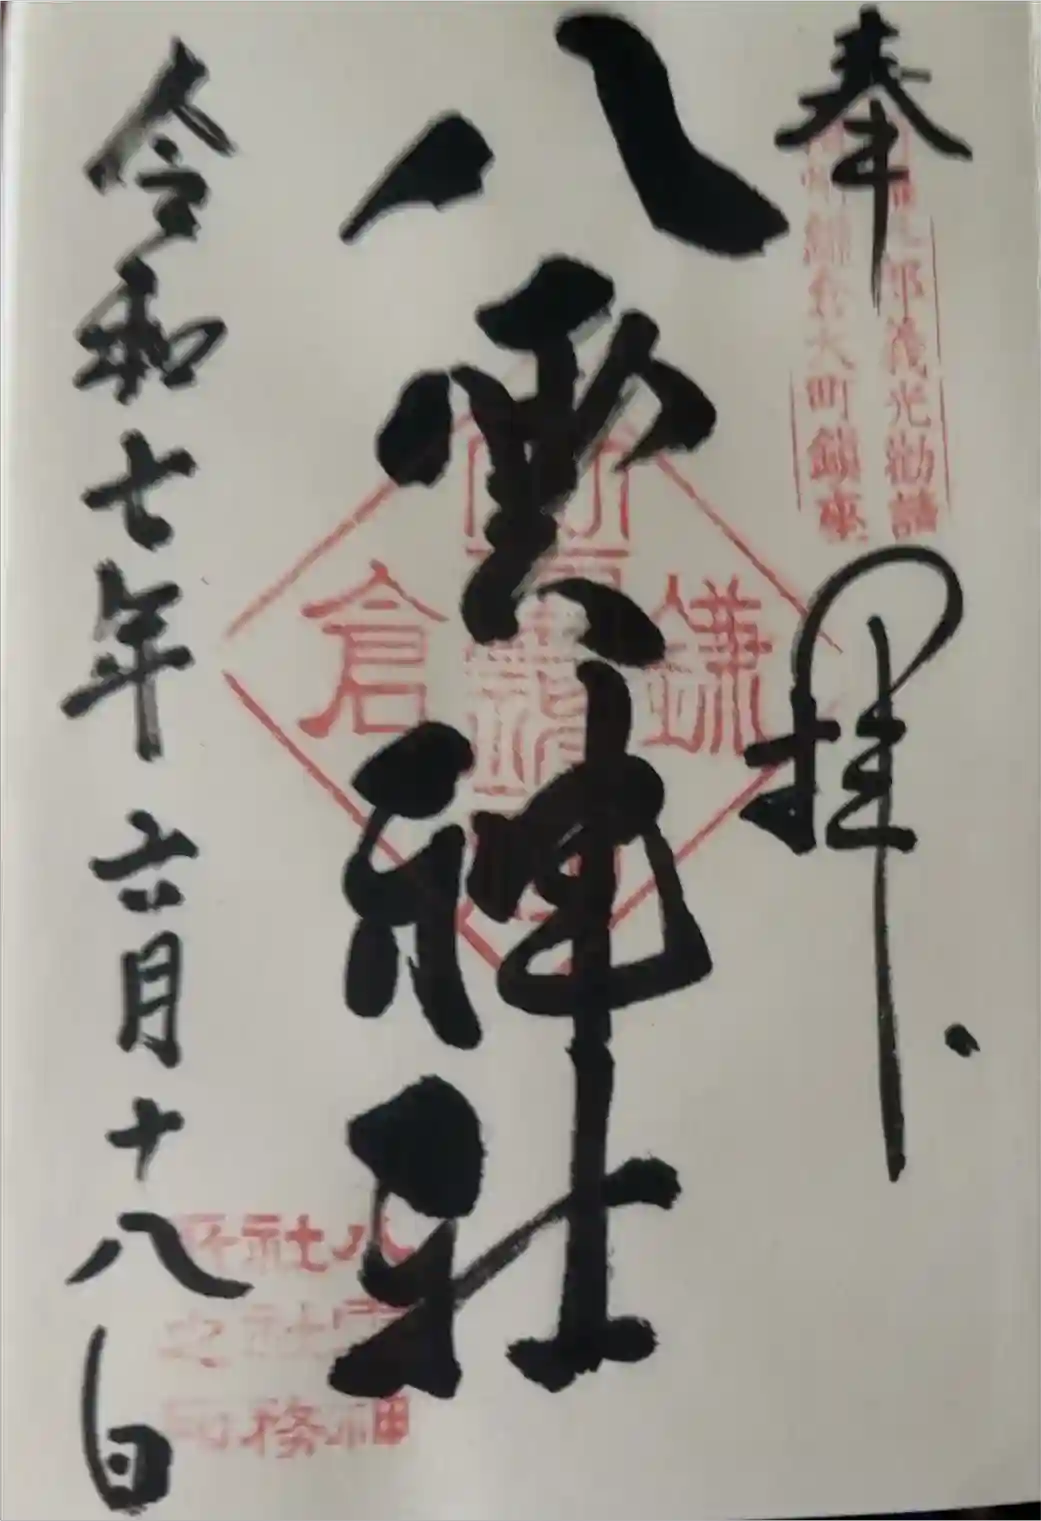 奉拝
郎義光勧請
鎌倉大町鎮座
八雲神社
鎌
倉
令和七年六月十八日
八雲神
社社務
所之印